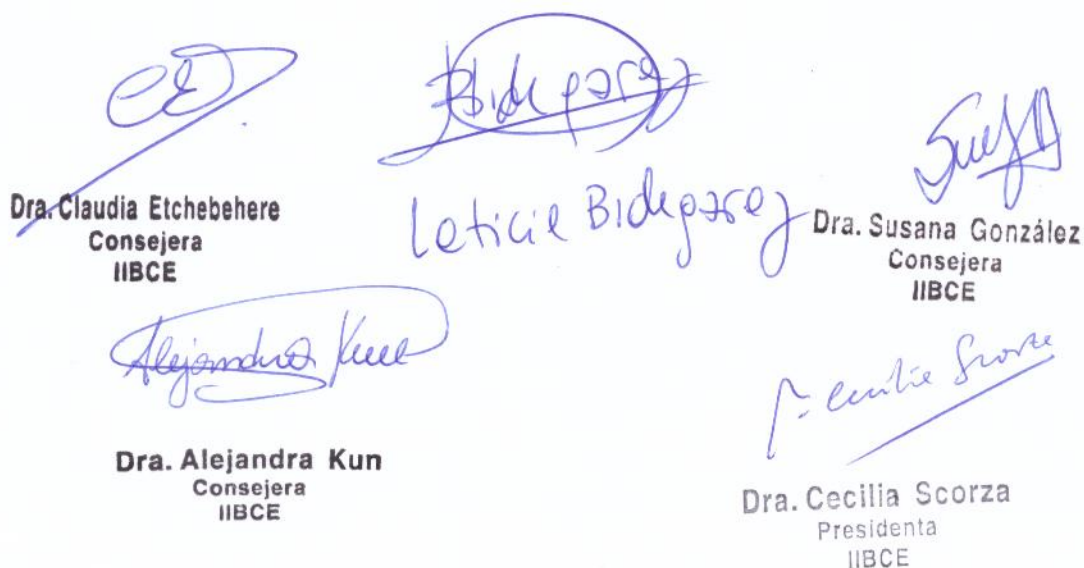 Bidegaray
Dra. Claudia Etchebehere
Consejera
IIBCE
Leticia Bidegaray
Dra. Susana González
Consejera
IIBCE
Alejandra Kun
Dra. Alejandra Kun
Consejera
IIBCE
Cecilia Scorza
Dra. Cecilia Scorza
Presidenta
IIBCE